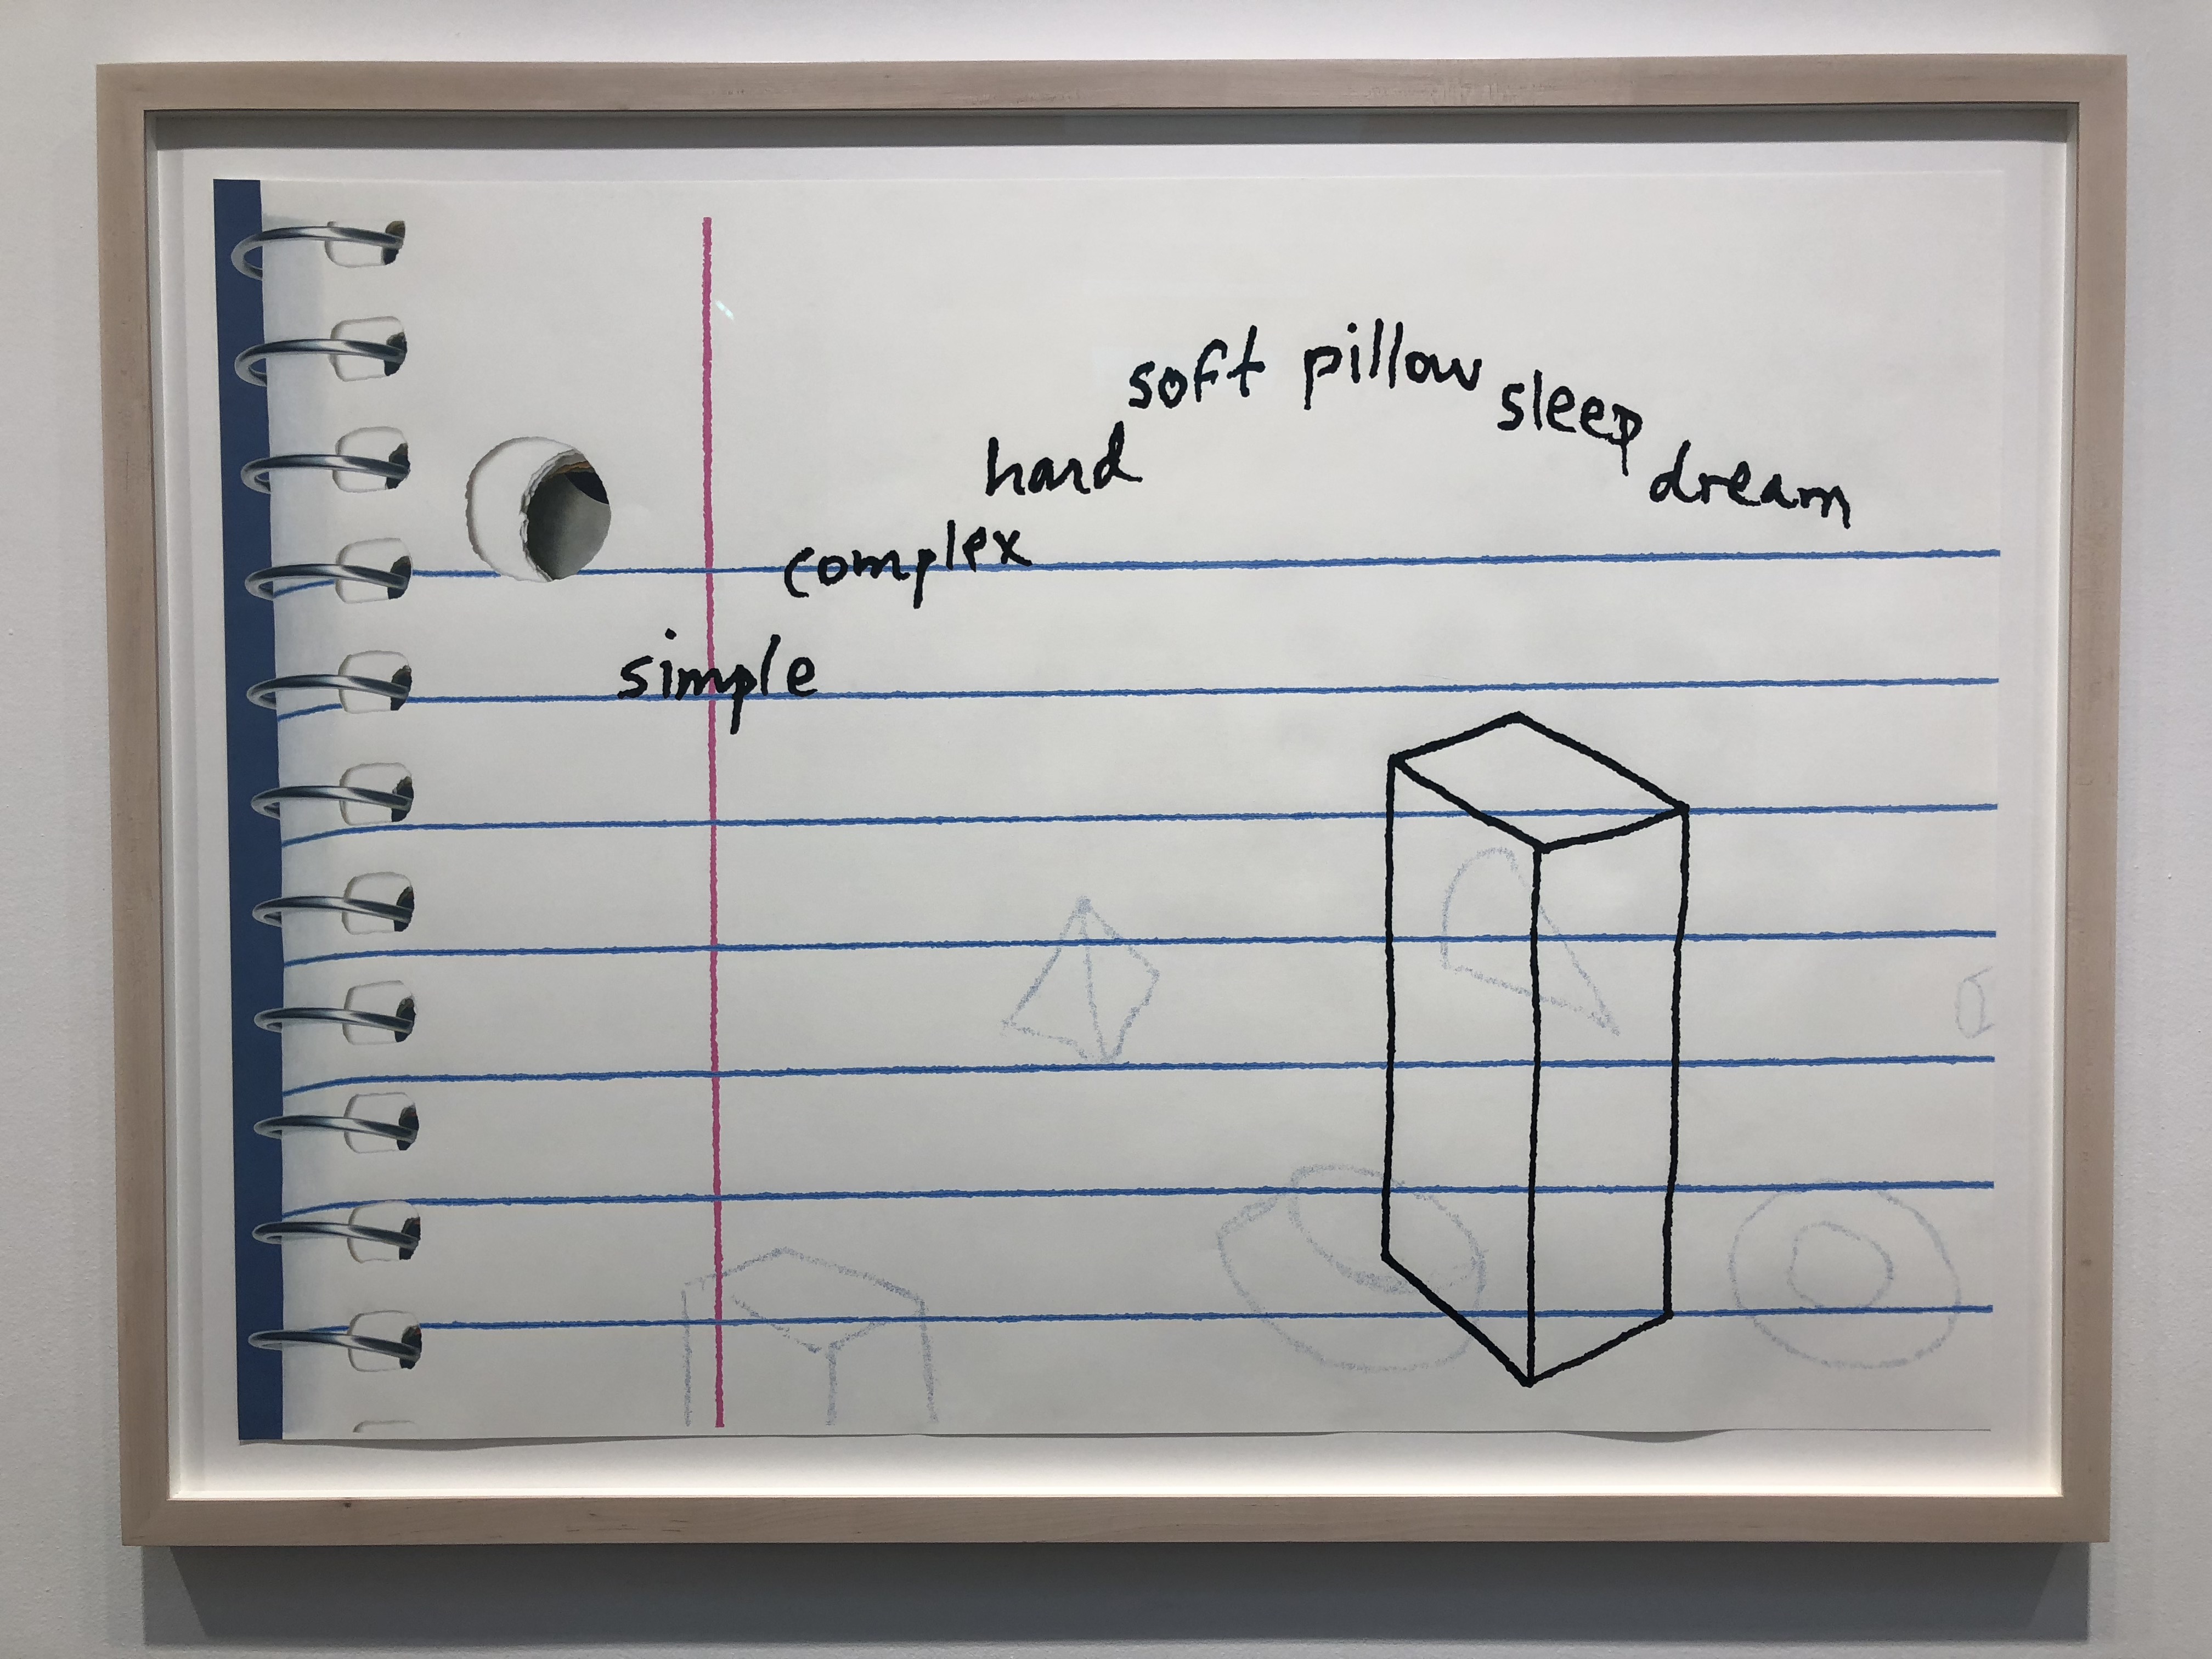 simple complex hard soft pillow sleep dream